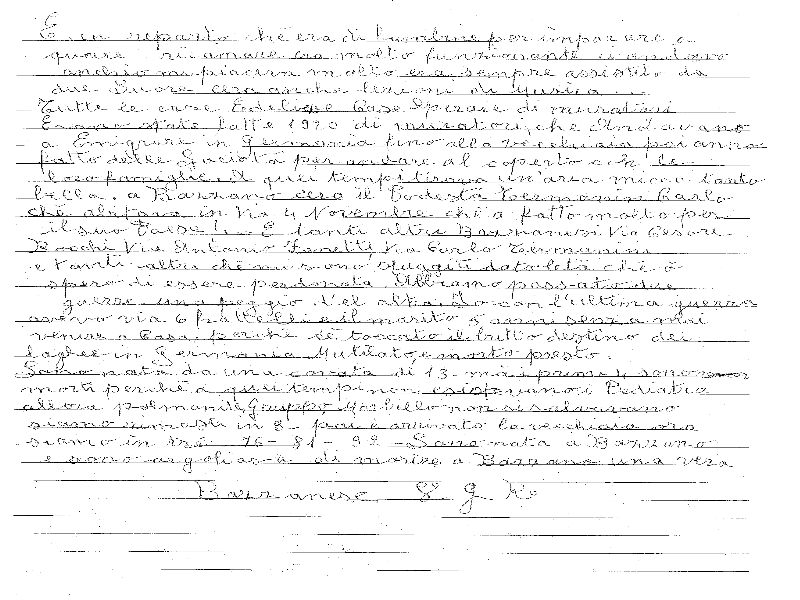 6
E un reparto che era di lucubrue per imparare a
qucire ricamare ero molto funzionante ci andavo
anchio mi piaceva molto era sempre assistito da
due Suore cera anche lezioni di Musica ...
Tutte le case Edelique Case Sparse di muratori
Erano state fatte 1920 di muratori, che Andavano
a Emigrare in Germania fino alla vecchiaia poi anno
fatto delle Società per andare al coperto ach le
loro famiglie. A quei tempi tirava un'aria meno tanto
bella. a Barzano cera il Podestà Termanini Carlo
che abitava in Via 4 Novembre che a fatto molto per
il suo Paese! E tanti altri Barzanesi Via Cesare
Rocchi Via Antonio Feretti Via Carlo Termanini
e tanti altri che mi sono sfuggiti data letà che ò
spero di essere perdonata. Abbiamo passatto due
guerre una peggio d'el altra. Io con l'ultima guerra
avevo via 6 fratelli e il marito 5 anni senza mai
venire a Casa perché cè toccato il brutto destino dei
laghee in Germania Mutilato e morto presto.
Sono nata da una covata di 13. ma i primi 4 sono
morti perché a quei tempi non esistevano i Pediatra
allora polmonite, Gruppo, Morbillo non si salvavano
siamo rimasti in 8 poi è arrivato la vecchiaia ora
siamo in tre 76 - 81 - 92 - Sono nata a Barzano
e sono orgogliosa di morire a Barzano una vera
Barzanese G. G. Ro